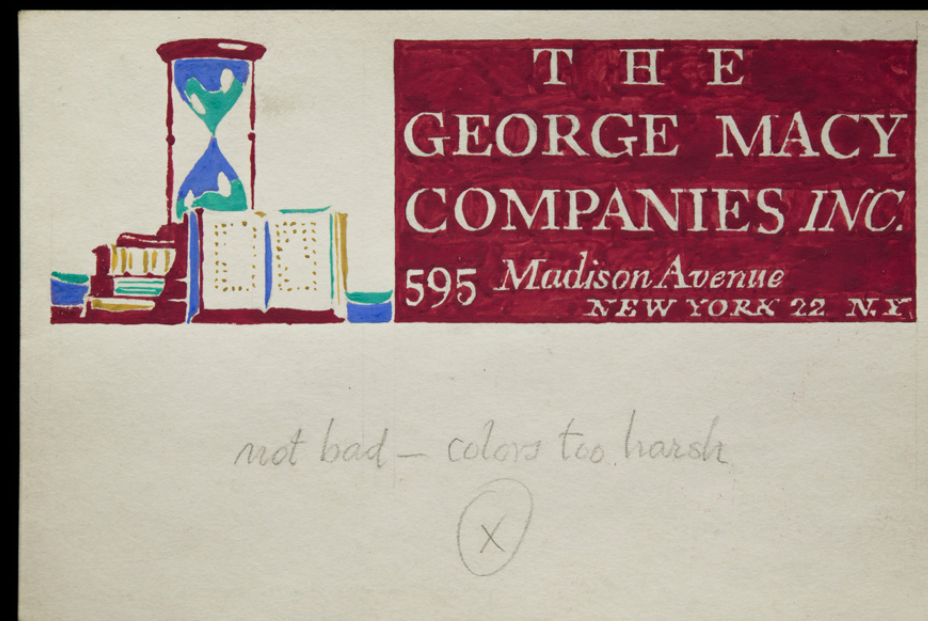 THE
GEORGE MACY
COMPANIES INC.
595 Madison Avenue
NEW YORK 22 N.Y.
not bad – colors too harsh
X